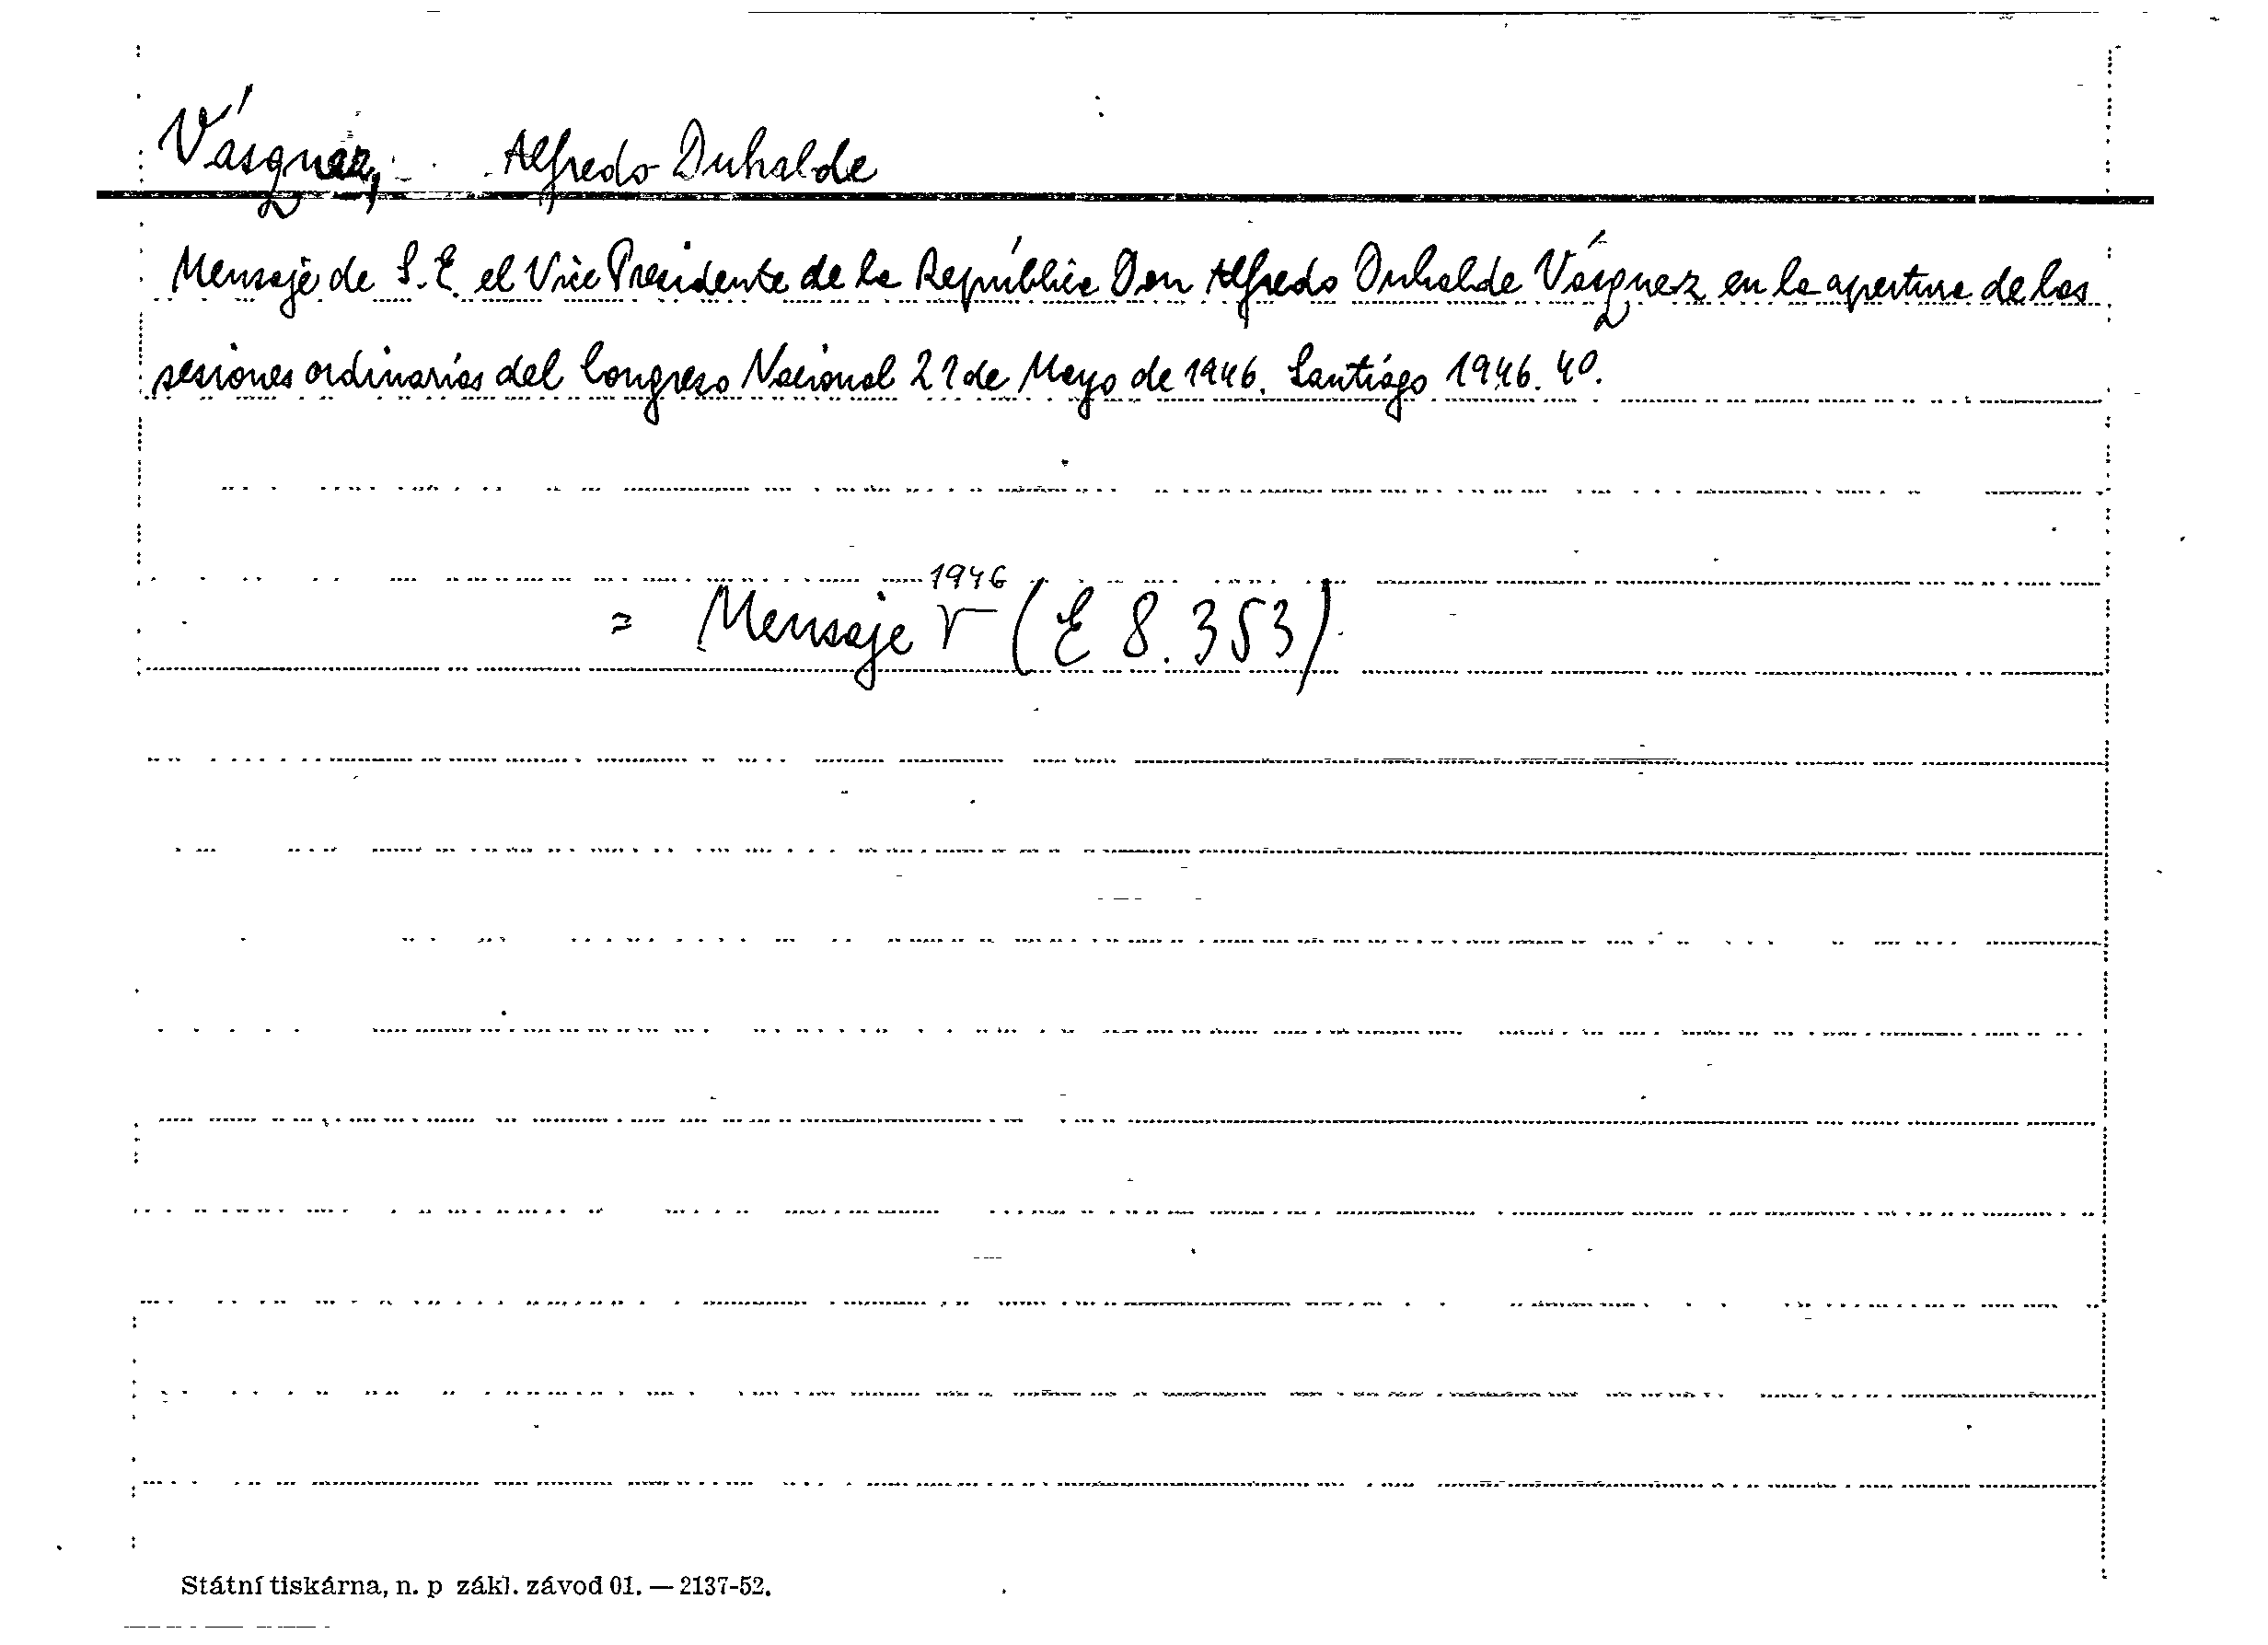 Vásquez, Alfredo Duhalde
Mensaje de S. E. el Vice Presidente de la República Don Alfredo Duhalde Vásquez en la apertura de las
sesiones ordinarias del Congreso Nacional 21 de Mayo de 1946. Santiágo 1946. 4º.
1946
= Mensaje (E 8.353)
Státní tiskárna, n. p zákl. závod 01. — 2137-52.